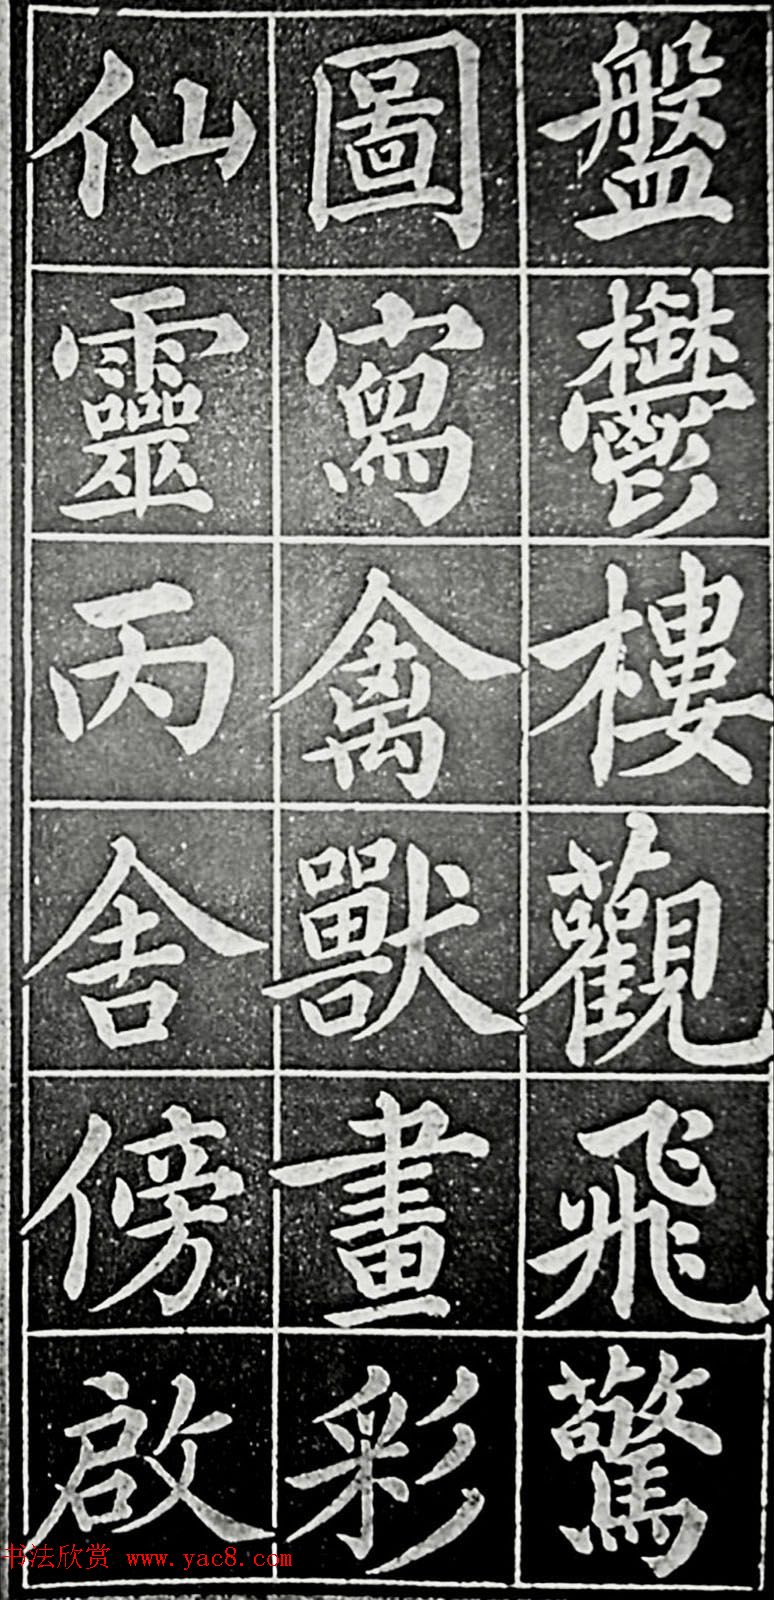 盤鬱樓觀飛驚
圖寫禽獸畫彩
仙靈丙舍傍啟
书法欣赏 www.yac8.com